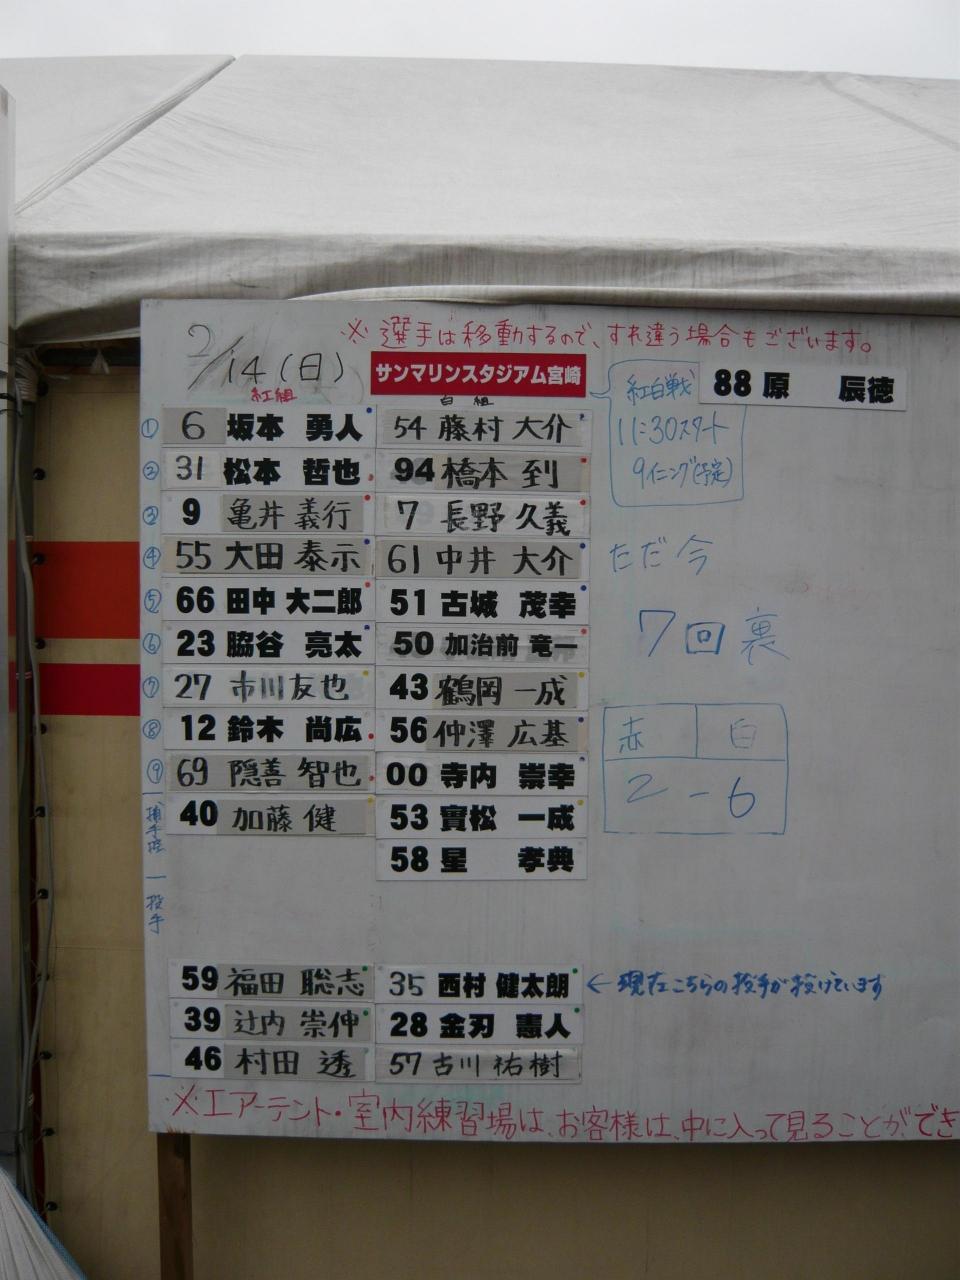 ※選手は移動するので、すれ違う場合もございます。
2/14(日)
サンマリンスタジアム宮崎
88 原 辰徳
紅白戦
11:30スタート
9イニング(予定)
紅組 白組
① 6 坂本 勇人 54 藤村 大介
② 31 松本 哲也 94 橋本 到
③ 9 亀井 義行 7 長野 久義
④ 55 大田 泰示 61 中井 大介
⑤ 66 田中 大二郎 51 古城 茂幸
⑥ 23 脇谷 亮太 50 加治前 竜一
⑦ 27 市川 友也 43 鶴岡 一成
⑧ 12 鈴木 尚広 56 仲澤 広基
⑨ 69 隠善 智也 00 寺内 崇幸
40 加藤 健 53 實松 一成
58 星 孝典
ただ今
7回裏
赤 白
2-6
投手
59 福田 聡志 35 西村 健太朗 ←現在こちらの投手が投げています
39 辻内 崇伸 28 金刃 憲人
46 村田 透 57 古川 祐樹
※エアーテント・室内練習場は、お客様は、中に入って見ることができ